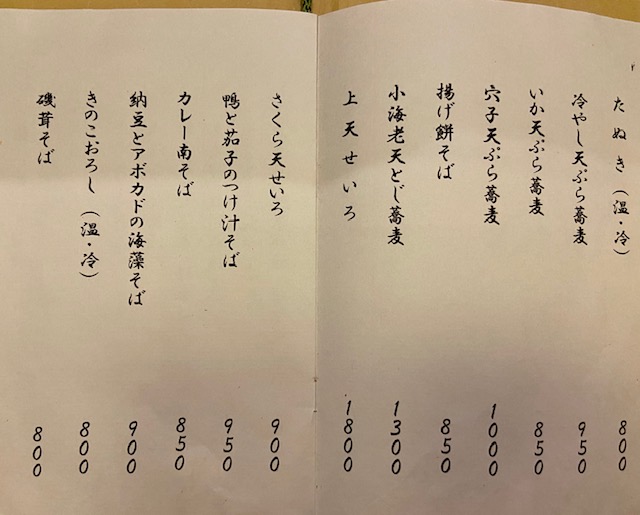 たぬき（温・冷） 800
冷やし天ぷら蕎麦 950
いか天ぷら蕎麦 850
穴子天ぷら蕎麦 1000
揚げ餅そば 850
小海老天とじ蕎麦 1300
上天せいろ 1800
さくら天せいろ 900
鴨と茄子のつけ汁そば 950
カレー南そば 850
納豆とアボカドの海藻そば 900
きのこおろし（温・冷） 800
磯茸そば 800